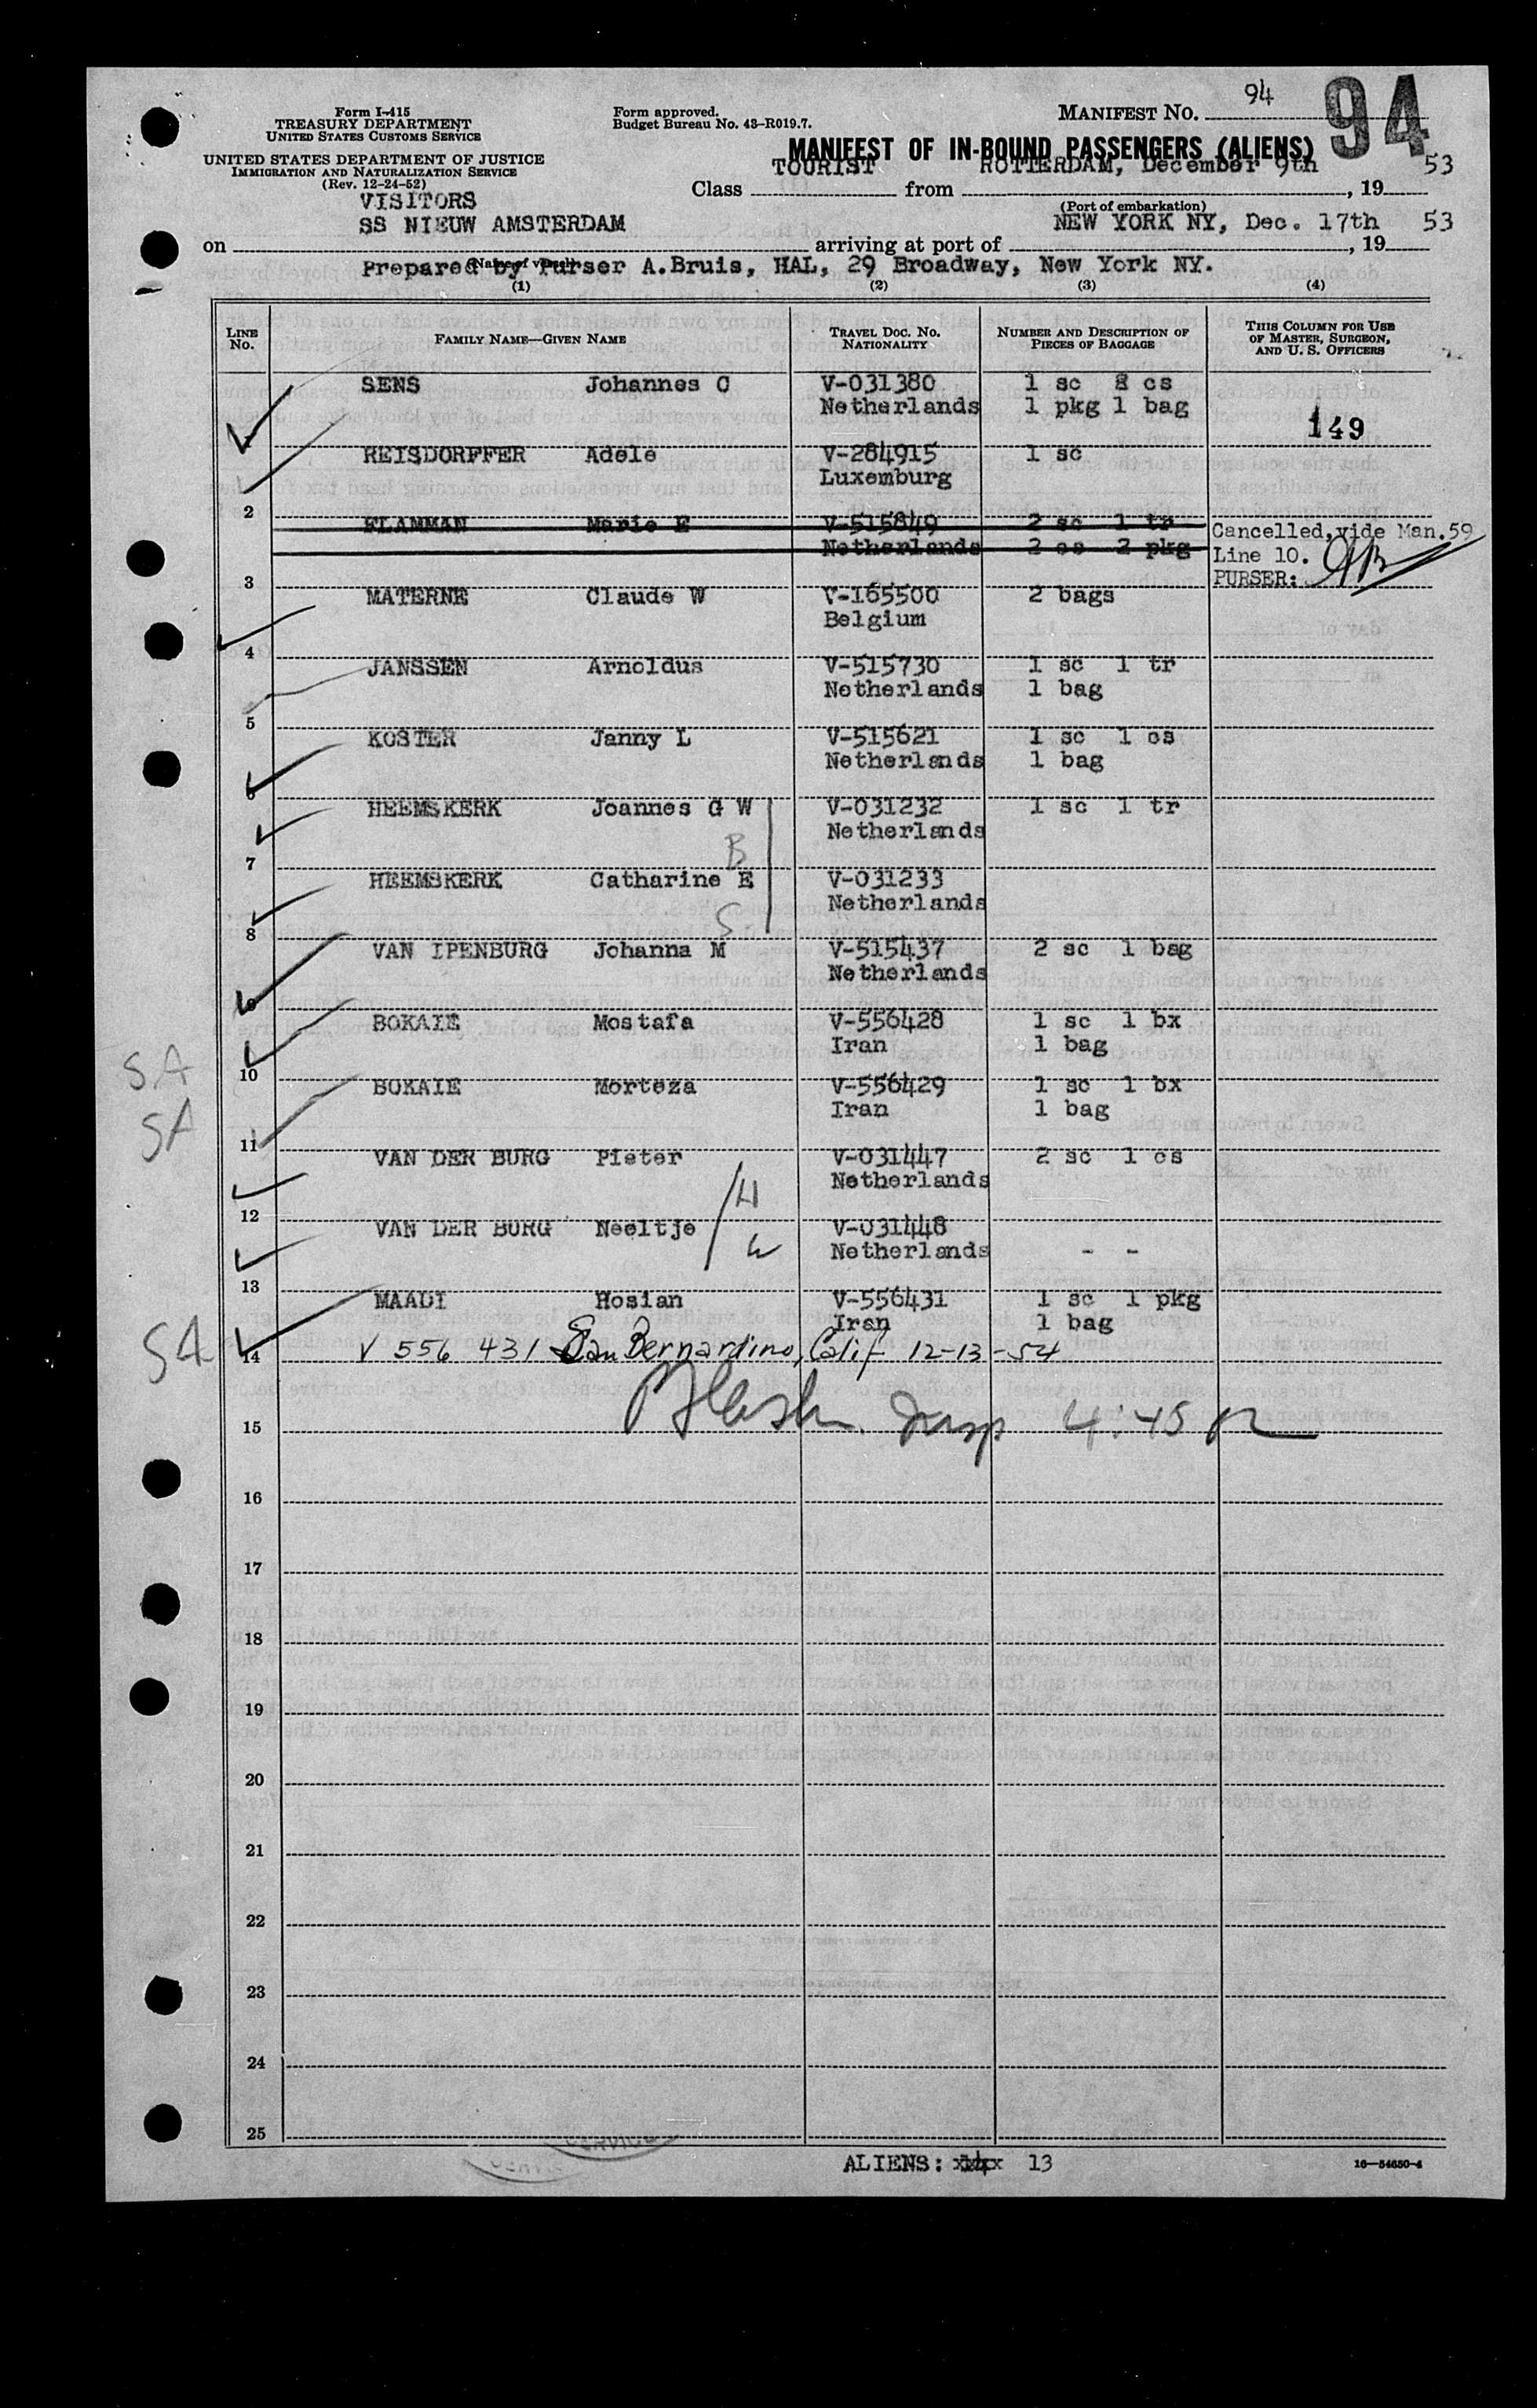 Form I-415
TREASURY DEPARTMENT
UNITED STATES CUSTOMS SERVICE
UNITED STATES DEPARTMENT OF JUSTICE
IMMIGRATION AND NATURALIZATION SERVICE
(Rev. 12-24-52)
Form approved.
Budget Bureau No. 43-R019.7.
MANIFEST NO. 94
94
MANIFEST OF IN-BOUND PASSENGERS (ALIENS)
Class TOURIST from ROTTERDAM, December 9th, 19 53
(Port of embarkation)
VISITORS
on SS NIEUW AMSTERDAM arriving at port of NEW YORK NY, Dec. 17th, 19 53
(Name of vessel)
Prepared by Purser A.Bruis, HAL, 29 Broadway, New York NY.
(1) (2) (3) (4)
LINE NO. FAMILY NAME—GIVEN NAME TRAVEL DOC. NO. NATIONALITY NUMBER AND DESCRIPTION OF PIECES OF BAGGAGE THIS COLUMN FOR USE OF MASTER, SURGEON, AND U. S. OFFICERS
SENS Johannes C V-031380 1 sc 2 cs
Netherlands 1 pkg 1 bag
149
REISDORFFER Adele V-284915 1 sc
Luxemburg
2
FLAMMAN Marie E V-515849 2 sc 1 tr Cancelled, vide Man.59
Netherlands 2 cs 2 pkg Line 10.
3 PURSER: AB
MATERNE Claude W V-165500 2 bags
Belgium
4
JANSSEN Arnoldus V-515730 1 sc 1 tr
Netherlands 1 bag
5
KOSTER Janny L V-515621 1 sc 1 cs
Netherlands 1 bag
6
HEEMSKERK Joannes G W V-031232 1 sc 1 tr
B Netherlands
7
HEEMSKERK Catharine E V-031233
S Netherlands
8
VAN IPENBURG Johanna M V-515437 2 sc 1 bag
Netherlands
9
BOKAIE Mostafa V-556428 1 sc 1 bx
Iran 1 bag
SA 10
BOKAIE Morteza V-556429 1 sc 1 bx
SA Iran 1 bag
11
VAN DER BURG Pieter V-031447 2 sc 1 cs
H Netherlands
12
VAN DER BURG Neeltje V-031448
W Netherlands - -
13
MAADI Hosian V-556431 1 sc 1 pkg
Iran 1 bag
SA 14 V 556 431 San Bernardino, Calif 12-13-54
Insp 4:45 P
15
16
17
18
19
20
21
22
23
24
25
ALIENS: 13
16—54650-4